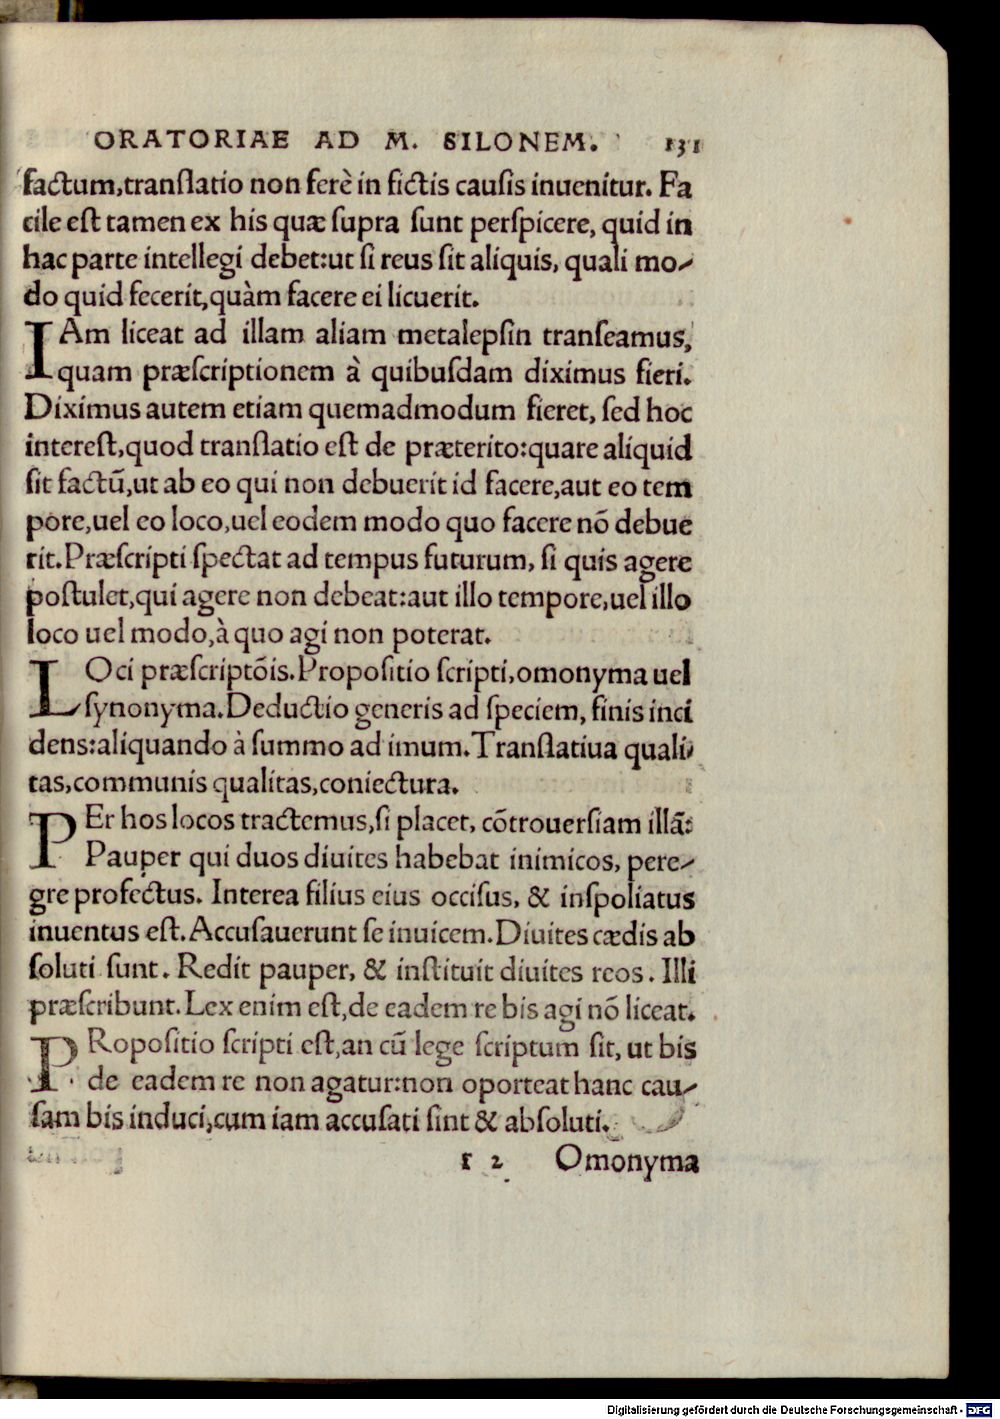 ORATORIAE AD M. SILONEM. 131
factum,tranſlatio non ferè in fictis cauſis inuenitur. Fa
cile eſt tamen ex his quæ ſupra ſunt perſpicere, quid in
hac parte intellegi debet:ut ſi reus ſit aliquis, quali mo-
do quid fecerit,quàm facere ei licuerit.
IAm liceat ad illam aliam metalepſin tranſeamus,
quam præſcriptionem à quibuſdam diximus fieri.
Diximus autem etiam quemadmodum fieret, ſed hoc
intereſt,quod tranſlatio eſt de præterito:quare aliquid
ſit factũ,ut ab eo qui non debuerit id facere,aut eo tem
pore,uel eo loco,uel eodem modo quo facere nõ debue
rit.Præſcripti ſpectat ad tempus futurum, ſi quis agere
poſtulet,qui agere non debeat:aut illo tempore,uel illo
loco uel modo,à quo agi non poterat.
LOci præſcriptõis.Propoſitio ſcripti,omonyma uel
ſynonyma.Deductio generis ad ſpeciem, finis inci
dens:aliquando à ſummo ad imum.Tranſlatiua quali-
tas,communis qualitas,coniectura.
PEr hos locos tractemus,ſi placet, cõtrouerſiam illã:
Pauper qui duos diuites habebat inimicos, pere-
gre profectus. Interea filius eius occiſus, & inſpoliatus
inuentus eſt.Accuſauerunt ſe inuicem.Diuites cædis ab
ſoluti ſunt. Redit pauper, & inſtituit diuites reos. Illi
præſcribunt.Lex enim eſt,de eadem re bis agi nõ liceat.
PRopoſitio ſcripti eſt,an cũ lege ſcriptum ſit, ut bis
de eadem re non agatur:non oporteat hanc cau-
ſam bis induci,cum iam accuſati ſint & abſoluti.
r 2 Omonyma
Digitalisierung gefördert durch die Deutsche Forschungsgemeinschaft - DFG